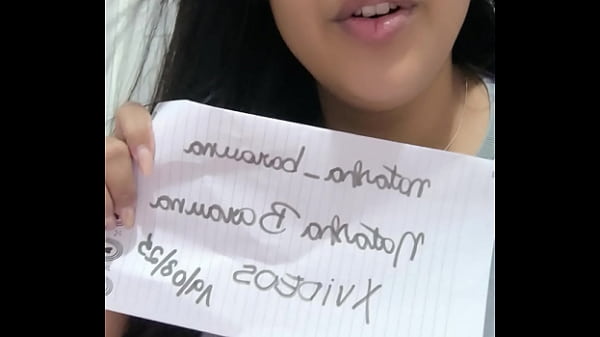 natasha_barauna
Natasha Barauna
XVIDEOS